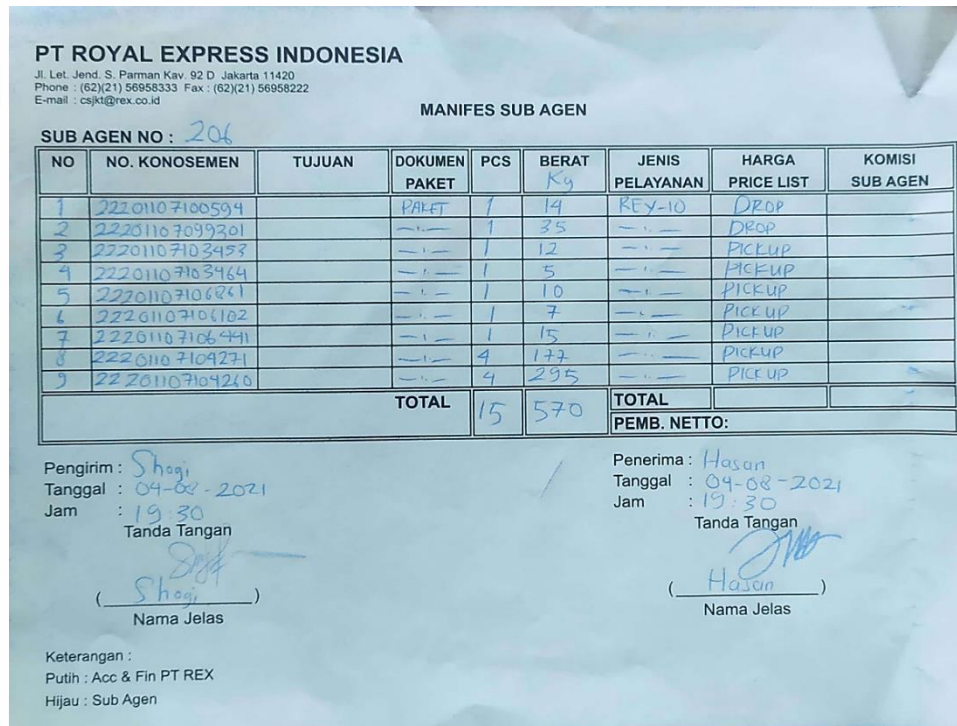 PT ROYAL EXPRESS INDONESIA
Jl. Let. Jend. S. Parman Kav. 92 D Jakarta 11420
Phone : (62)(21) 56958333 Fax : (62)(21) 56958222
E-mail : csjkt@rex.co.id
MANIFES SUB AGEN
SUB AGEN NO : 206
NO NO. KONOSEMEN TUJUAN DOKUMEN PAKET PCS BERAT Kg JENIS PELAYANAN HARGA PRICE LIST KOMISI SUB AGEN
1 22201107100594 PAKET 1 14 REX-10 DROP
2 22201107099301 — ı — 1 35 — ı — DROP
3 22201107103453 — ı — 1 12 — ı — PICKUP
4 22201107103464 — ı — 1 5 — ı — PICKUP
5 22201107106861 — ı — 1 10 — ı — PICKUP
6 22201107106102 — ı — 1 7 — ı — PICKUP
7 22201107106441 — ı — 1 15 — ı — PICKUP
8 22201107109271 — ı — 4 177 — ı — PICKUP
9 22201107109260 — ı — 4 295 — ı — PICKUP
TOTAL 15 570 TOTAL
PEMB. NETTO:
Pengirim : Shogi
Tanggal : 04-08-2021
Jam : 19:30
Tanda Tangan
( Shogi )
Nama Jelas
Penerima : Hasan
Tanggal : 04-08-2021
Jam : 19:30
Tanda Tangan
( Hasan )
Nama Jelas
Keterangan :
Putih : Acc & Fin PT REX
Hijau : Sub Agen